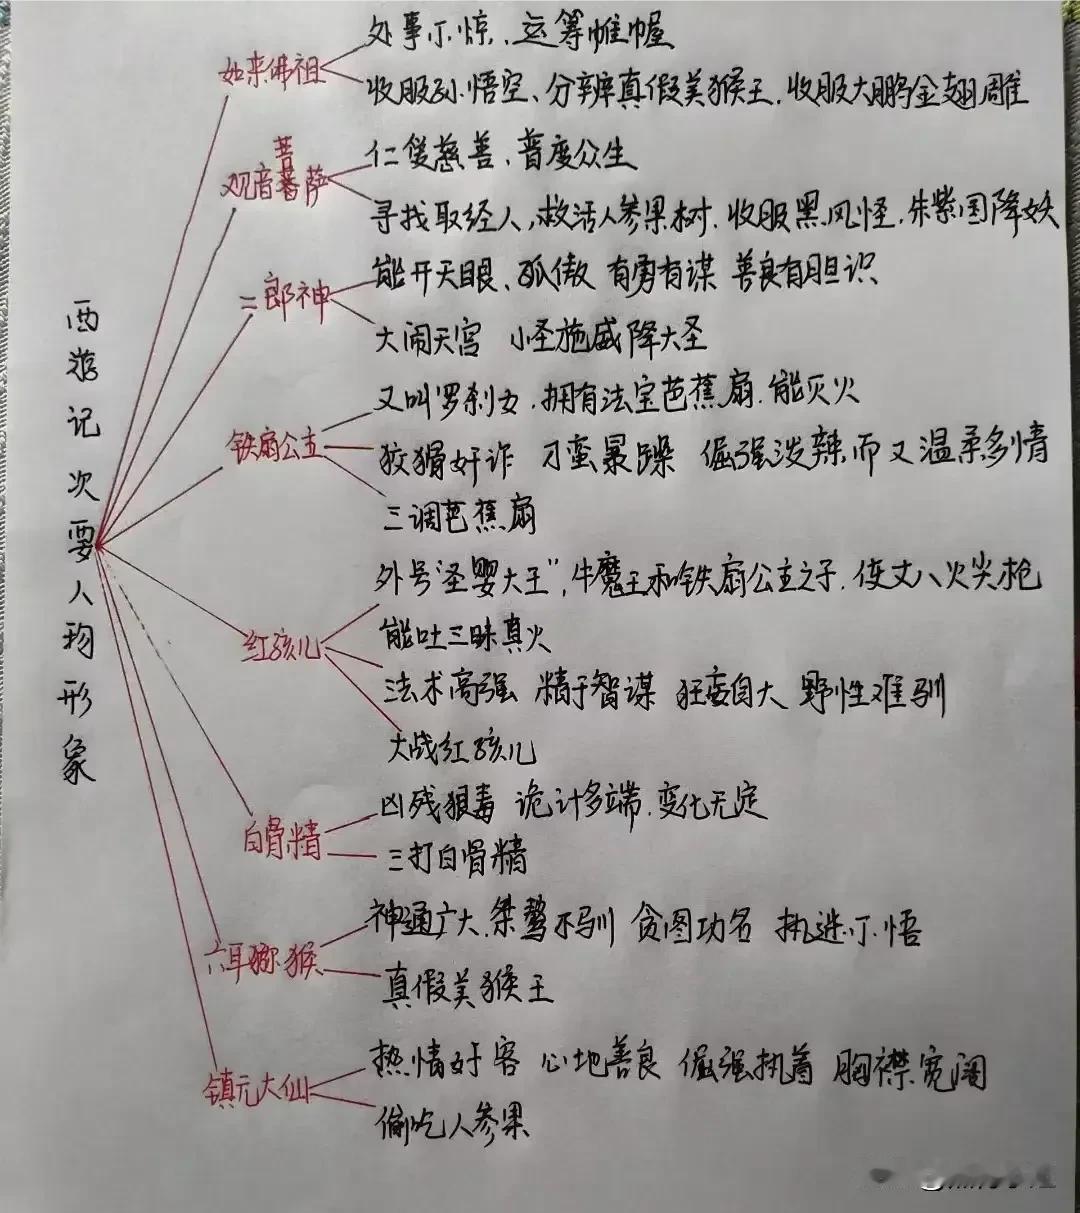 西游记次要人物形象
如来佛祖
处事不惊、运筹帷幄
收服孙悟空、分辨真假美猴王、收服大鹏金翅雕
观音菩萨
仁慈善、普度众生
寻找取经人,救活人参果树、收服黑风怪、朱紫国降妖
二郎神
能开天眼、孤傲 有勇有谋 善良有胆识
大闹天宫 小圣施威降大圣
铁扇公主
又叫罗刹女、拥有法宝芭蕉扇、能灭火
狡猾奸诈 刁蛮暴躁 倔强泼辣而又温柔多情
三调芭蕉扇
红孩儿
外号“圣婴大王”,牛魔王和铁扇公主之子、使丈八火尖枪
能吐三昧真火
法术高强 精于智谋 狂妄自大 野性难驯
大战红孩儿
白骨精
凶残狠毒 诡计多端、变化无定
三打白骨精
六耳猕猴
神通广大、桀骜不驯 贪图功名 执迷不悟
真假美猴王
镇元大仙
热情好客 心地善良 倔强执着 胸襟宽阔
偷吃人参果